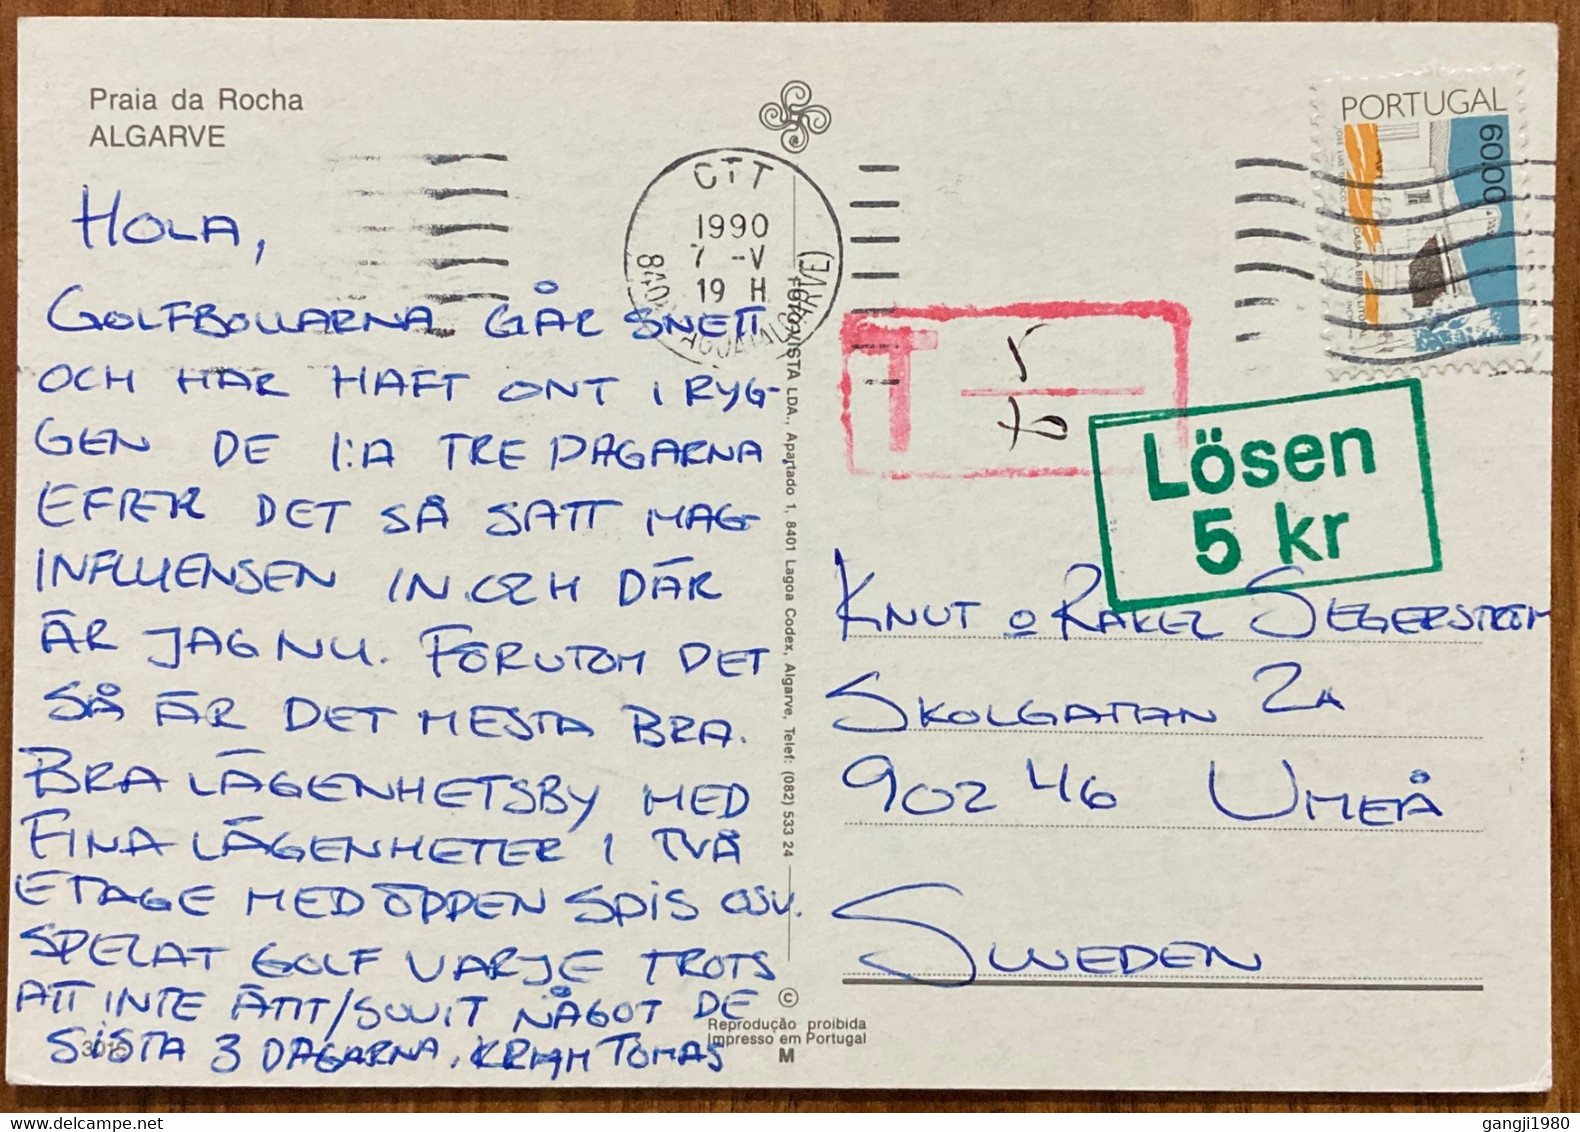 Praia da Rocha
ALGARVE
HOLA,
GOLFBOLLARNA GÅR SNETT
OCH HAR HAFT ONT I RYG-
GEN DE 1:A TRE DAGARNA,
EFTER DET SÅ SATT MAG-
INFLUENSEN IN. OCH DÄR
ÄR JAG NU. FÖRUTOM DET
SÅ ÄR DET MESTA BRA.
BRA LÄGENHETSBY MED
FINA LÄGENHETER I TVÅ
ETAGE MED ÖPPEN SPIS OSV.
SPELAT GOLF VARJE TROTS
ATT INTE ÄTIT/SOVIT NÅGOT DE
SISTA 3 DAGARNA. KRAM TOMAS
3015
CTT
1990
7 -V
19 H
FOTO-VISTA LDA., Apartado 1, 8401 Lagoa Codex, Algarve, Telef: (082) 533 24
©
Reprodução proibida
Impresso em Portugal
M
PORTUGAL
60.00
T
Lösen
5 kr
KNUT o RAKEL SEGERSTRÖM
SKOLGATAN 2A
902 46 UMEÅ
SWEDEN
gangji1980